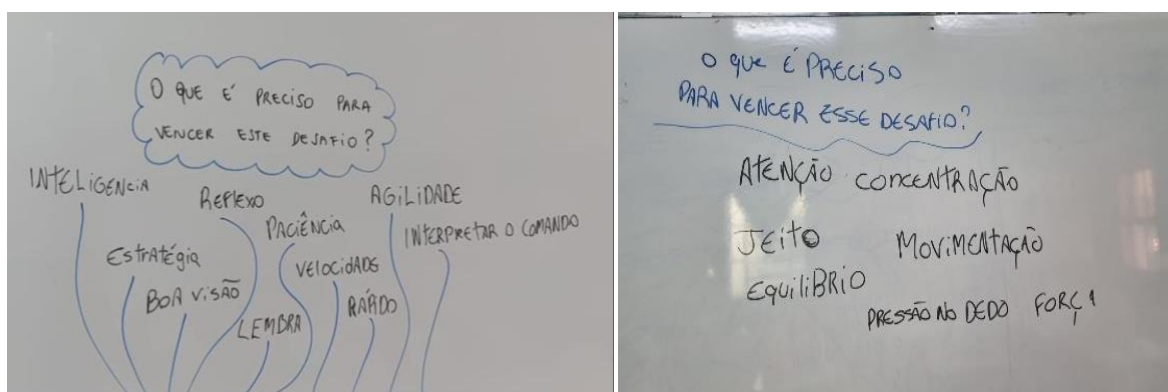 O QUE É PRECISO PARA
VENCER ESTE DESAFIO?
INTELIGENCIA
REFLEXO
AGILIDADE
PACIÊNCIA
INTERPRETAR O COMANDO
EStRAtÉgiA
VELOCIDADE
BOA VISÃO
RÁPIDO
LEMBRA
O QUE É PRECISO
PARA VENCER ESSE DESAFIO?
ATENÇÃO CONCENTRAÇÃO
JEITO MOVIMENTAÇÃO
EQUILIBRIO
PRESSÃO NO DEDO FORÇA